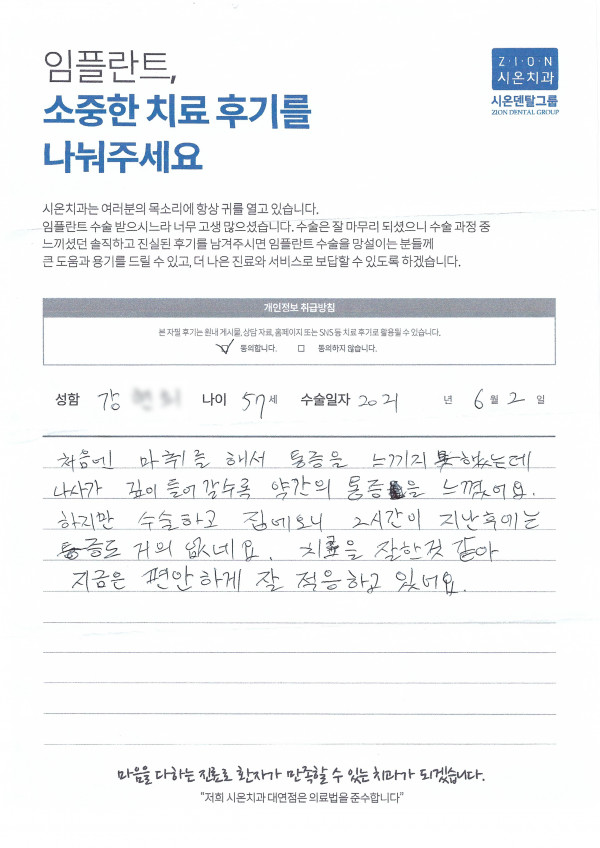 임플란트,
소중한 치료 후기를
나눠주세요
Z·I·O·N
시온치과
시온덴탈그룹
ZION DENTAL GROUP
시온치과는 여러분의 목소리에 항상 귀를 열고 있습니다.
임플란트 수술 받으시느라 너무 고생 많으셨습니다. 수술은 잘 마무리 되셨으니 수술 과정 중
느끼셨던 솔직하고 진실된 후기를 남겨주시면 임플란트 수술을 망설이는 분들께
큰 도움과 용기를 드릴 수 있고, 더 나은 진료와 서비스로 보답할 수 있도록 하겠습니다.
개인정보 취급방침
본 자필 후기는 원내 게시물, 상담 자료, 홈페이지 또는 SNS 등 치료 후기로 활용될 수 있습니다.
동의합니다. 동의하지 않습니다.
성함 강 나이 57 세 수술일자 2021 년 6 월 2 일
처음엔 마취를 해서 통증을 느끼지 못했는데
나사가 깊이 들어갈수록 약간의 통증을 느꼈어요.
하지만 수술하고 집에오니 2시간이 지난후에는
통증도 거의 없네요. 치료를 잘한것 같아
지금은 편안하게 잘 적응하고 있어요.
마음을 다하는 진료로 환자가 만족할 수 있는 치과가 되겠습니다.
"저희 시온치과 대연점은 의료법을 준수합니다"